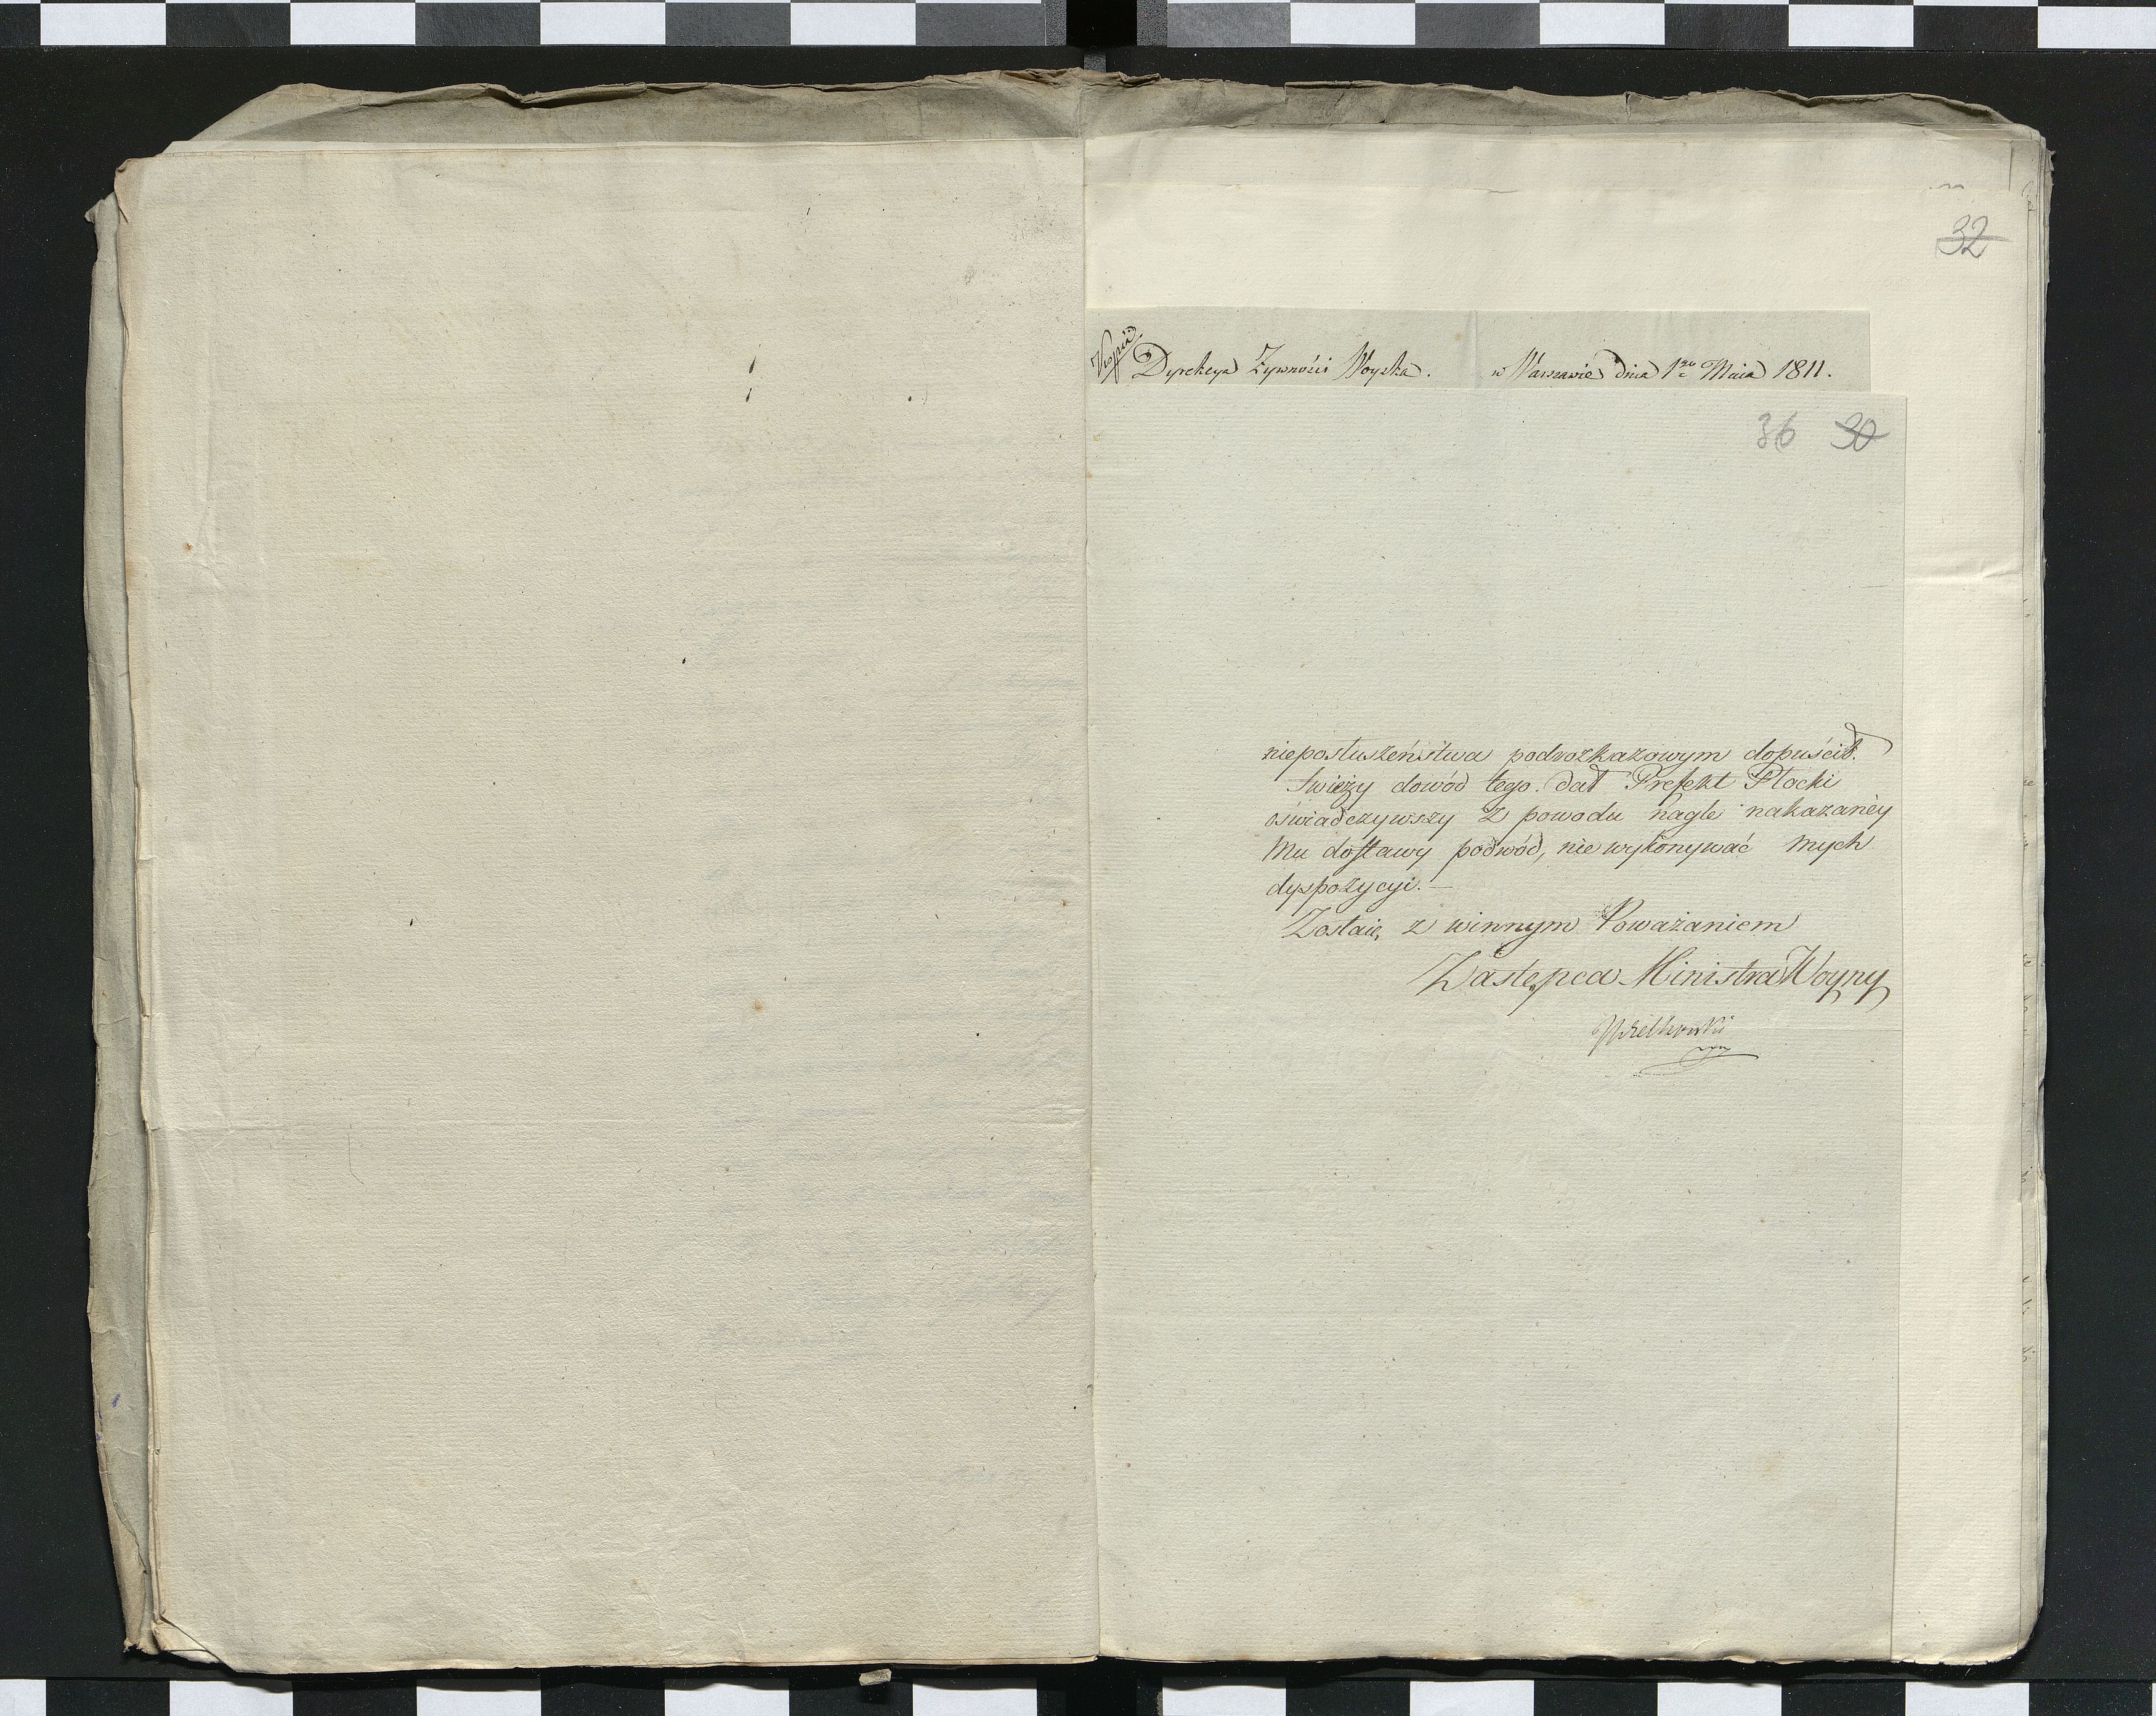 32
Kopia
Dyrekcya Żywności Woyska. w Warszawie dnia 1go Maia 1811.
36 30
nieposłuszeństwa podrozkazowym dopuścił.
Świeży dowód tego dał Prefekt Płocki
oświadczywszy z powodu nagle nakazaney
Mu dostawy podwód, nie wykonywać mych
dyspozycyi. —
Zostaię z winnym Poważaniem
Zastępca Ministra Woyny
Wielhorski